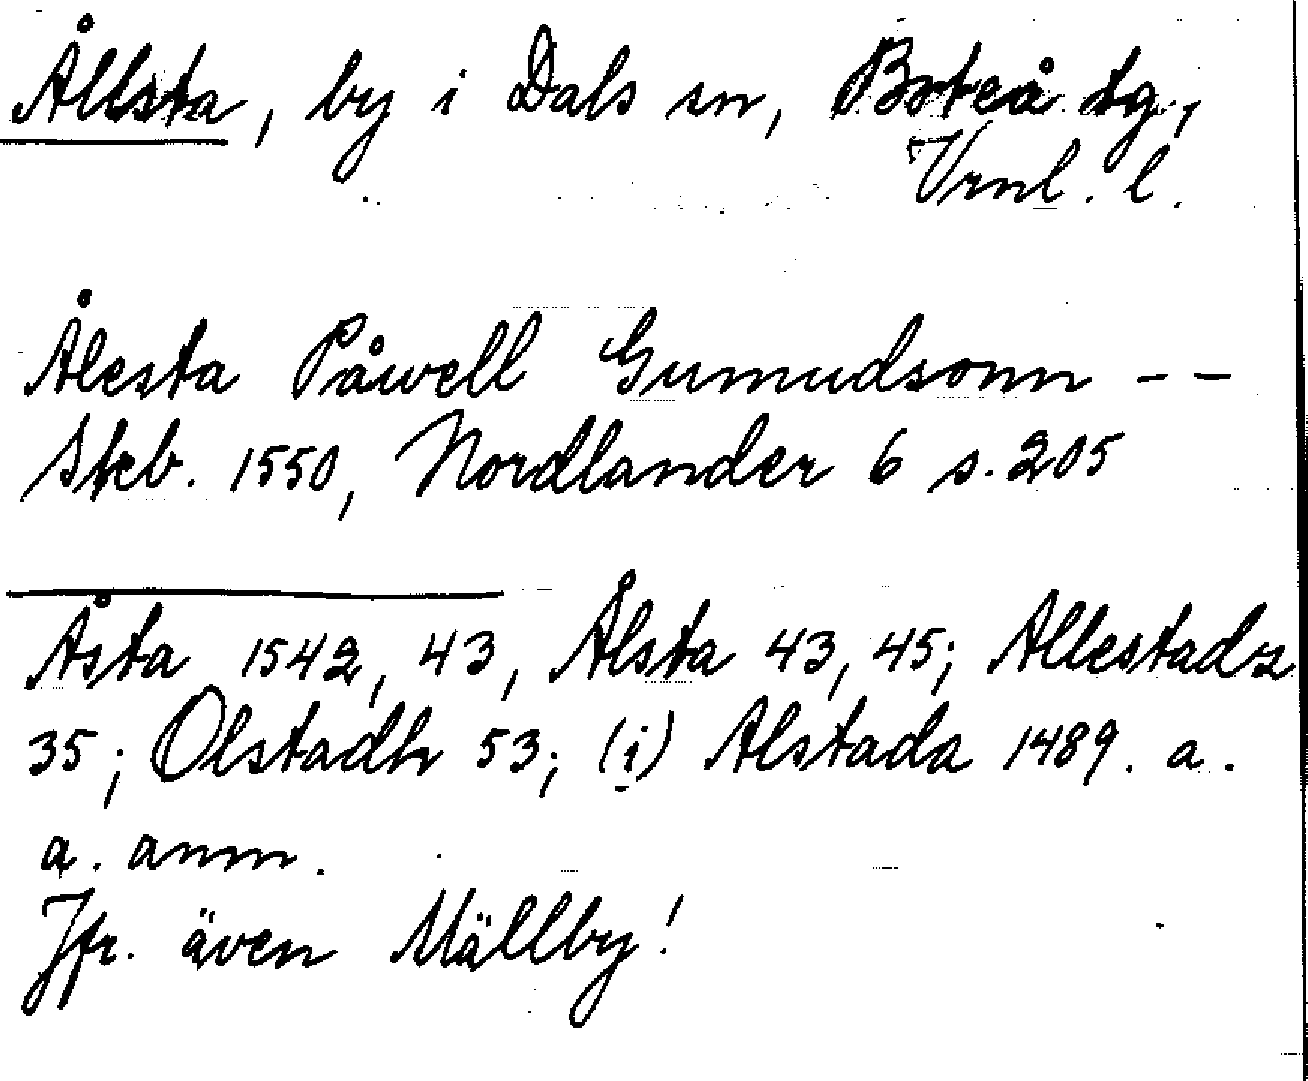 Ållsta, by i Dals sn, Boteå tg,
Vrnl. l.
Ålesta Påwell Gumudsonn - -
Skb. 1550, Nordlander 6 s. 205
Åsta 1542, 43, Ålsta 43, 45; Allestadz
35; Olstadh 53; (i) Alstada 1489. a.
a. anm.
Jfr. även Mällby!